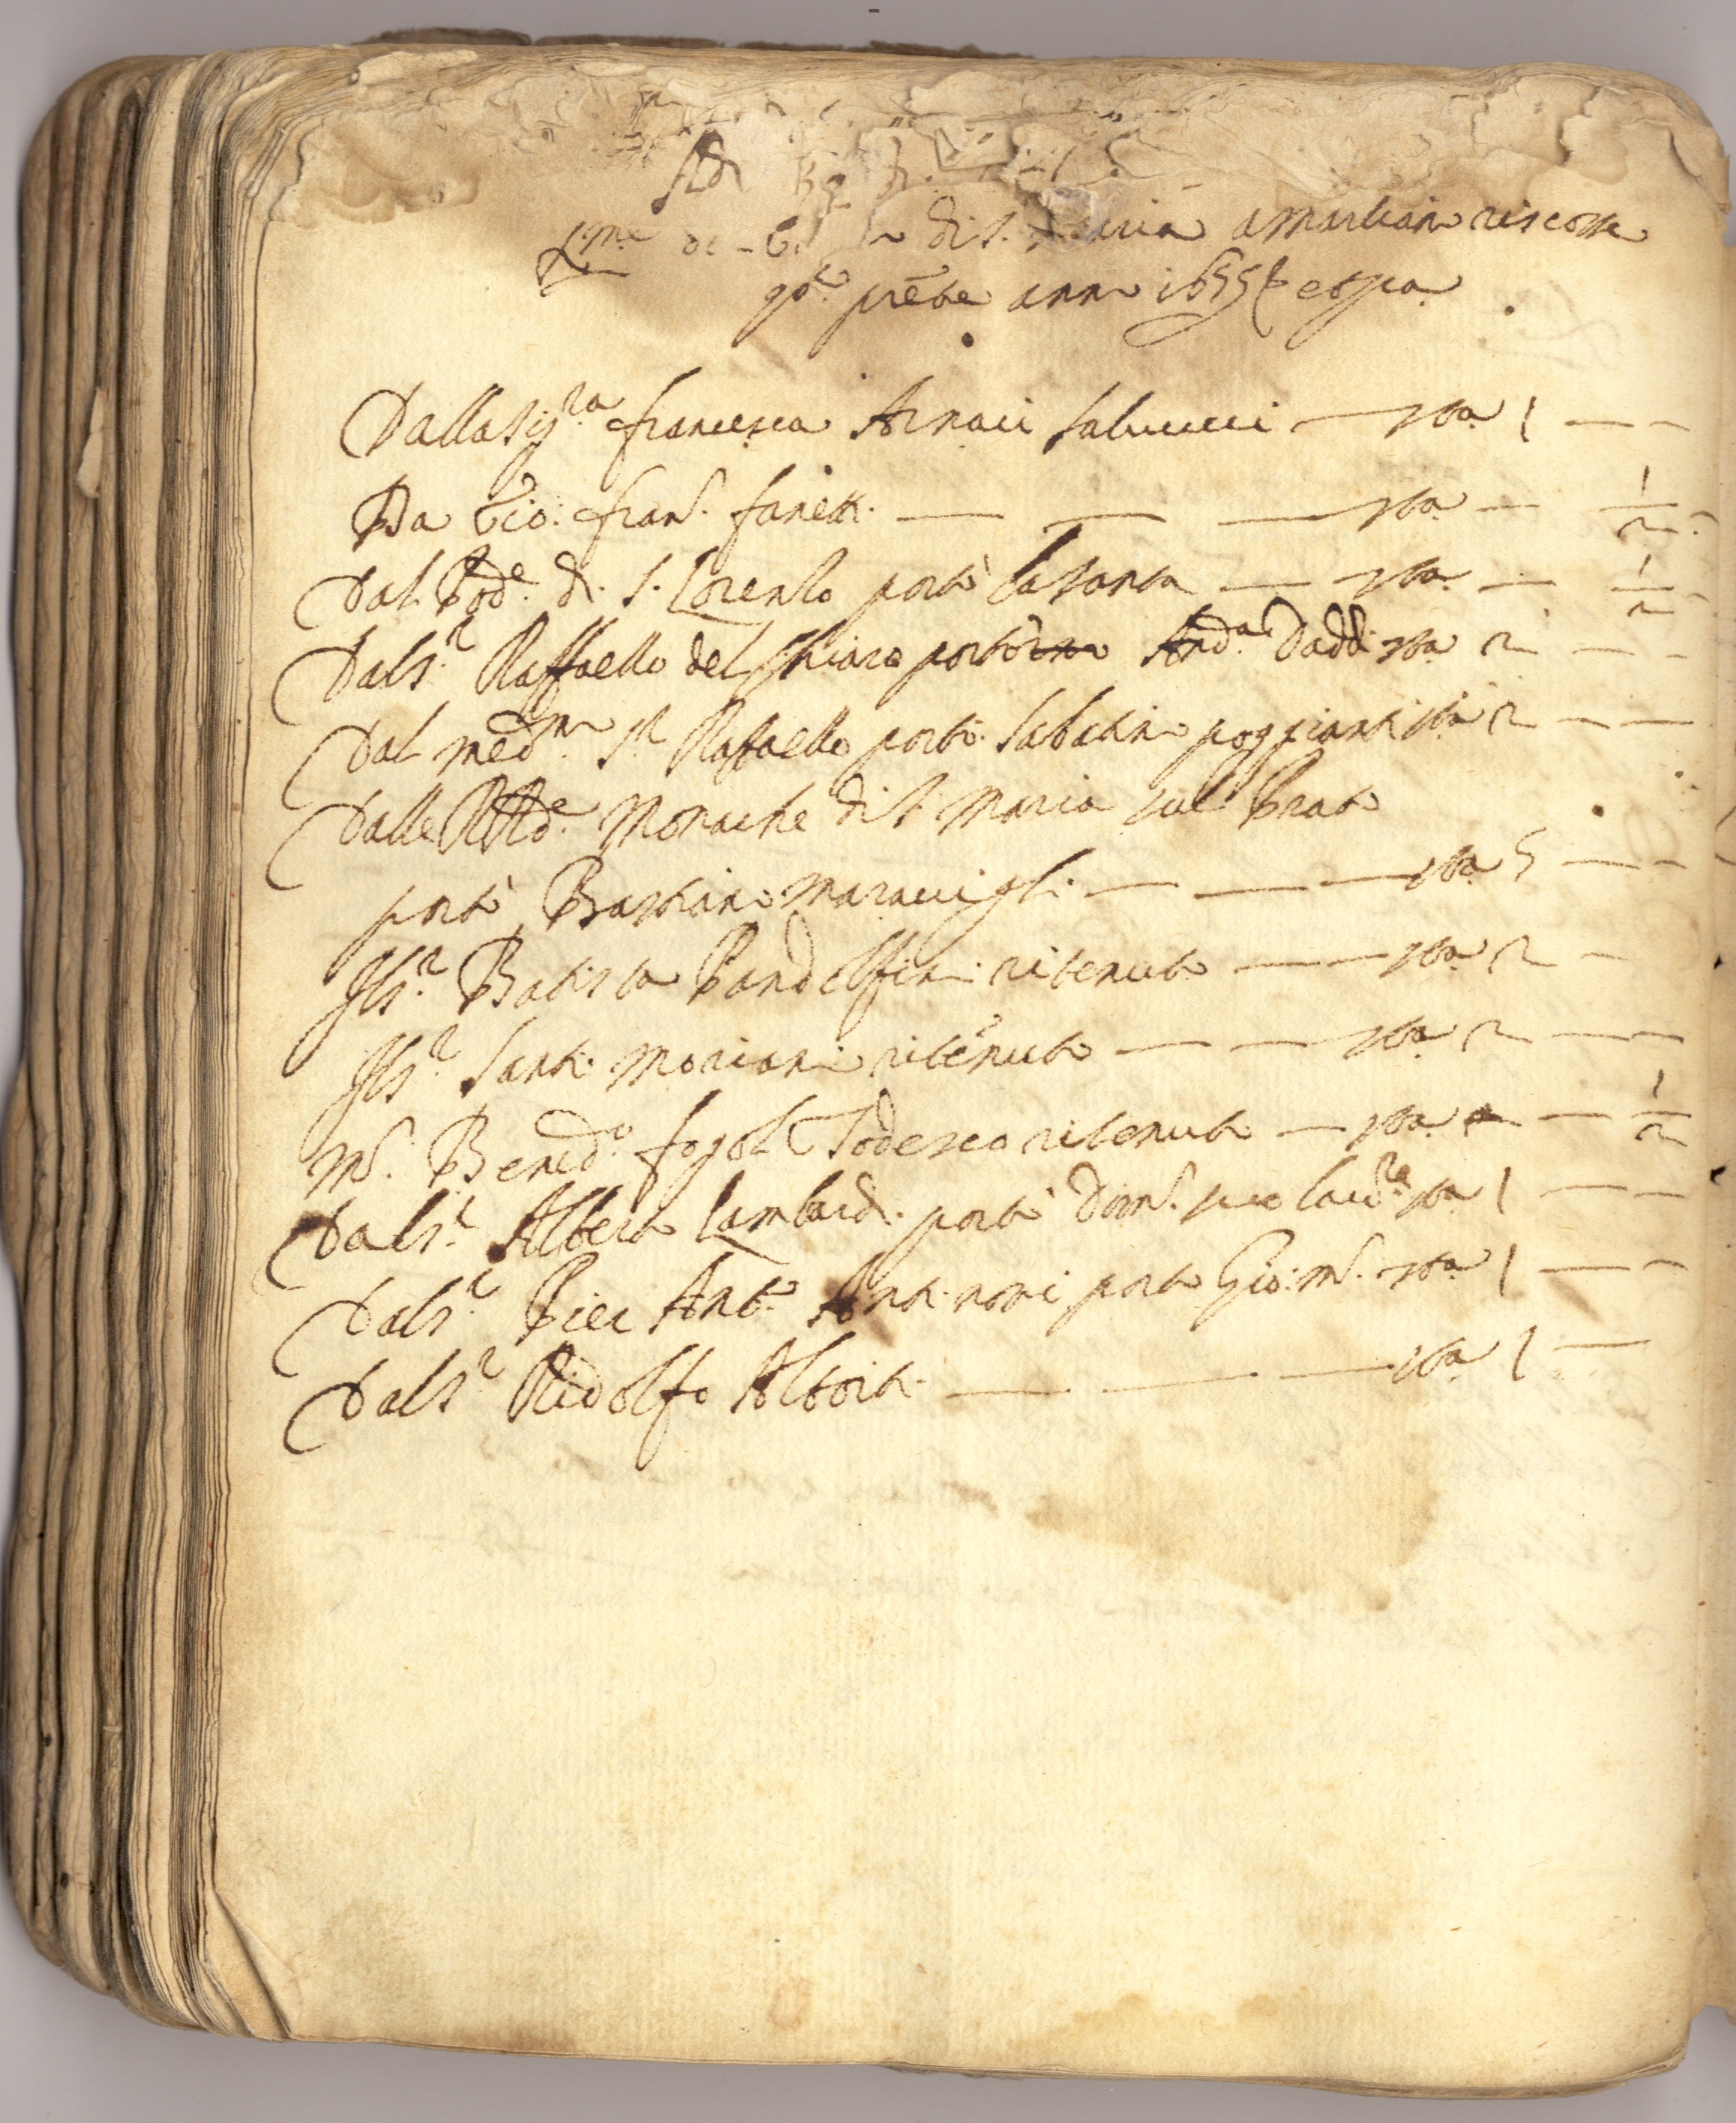 Adi
di S. Maria a Martiano riscosse
q.to pñte anno 1655 e
Dalla Sig.ra Francesca Arnaci Salucci — sta 1 — —
Da Gio: Fran.o Fanetti. — — — sta — 1/2
Dal Pod.e di S. Lorenzo portò la Santa — sta — 1/2
Dal S.r Raffaello del Chiaro portò And.a Daddi sta 2 — —
Dal med.mo S.r Raffaello portò Sabatino poggianti sta 2 — —
Dalle RR.de Monache di S. Maria sul Prato
portò Bastiano Maravigli — — — sta 5 — —
Il S.r Batista Pandolfini ritenuto — — sta 2 —
Il S.r Santi Moriani ritenuto — — sta 2 — —
M.o Bened.o Todesco ritenuto — sta — 1/2
Dal S.r Alberto Lombardi portò Dom.o suo sta 1 — —
Dal S.r Pier Ant.o Antinori portò Gio: M.a sta 1 — —
Dal S.r Ridolfo Altoviti — — — sta 1 —